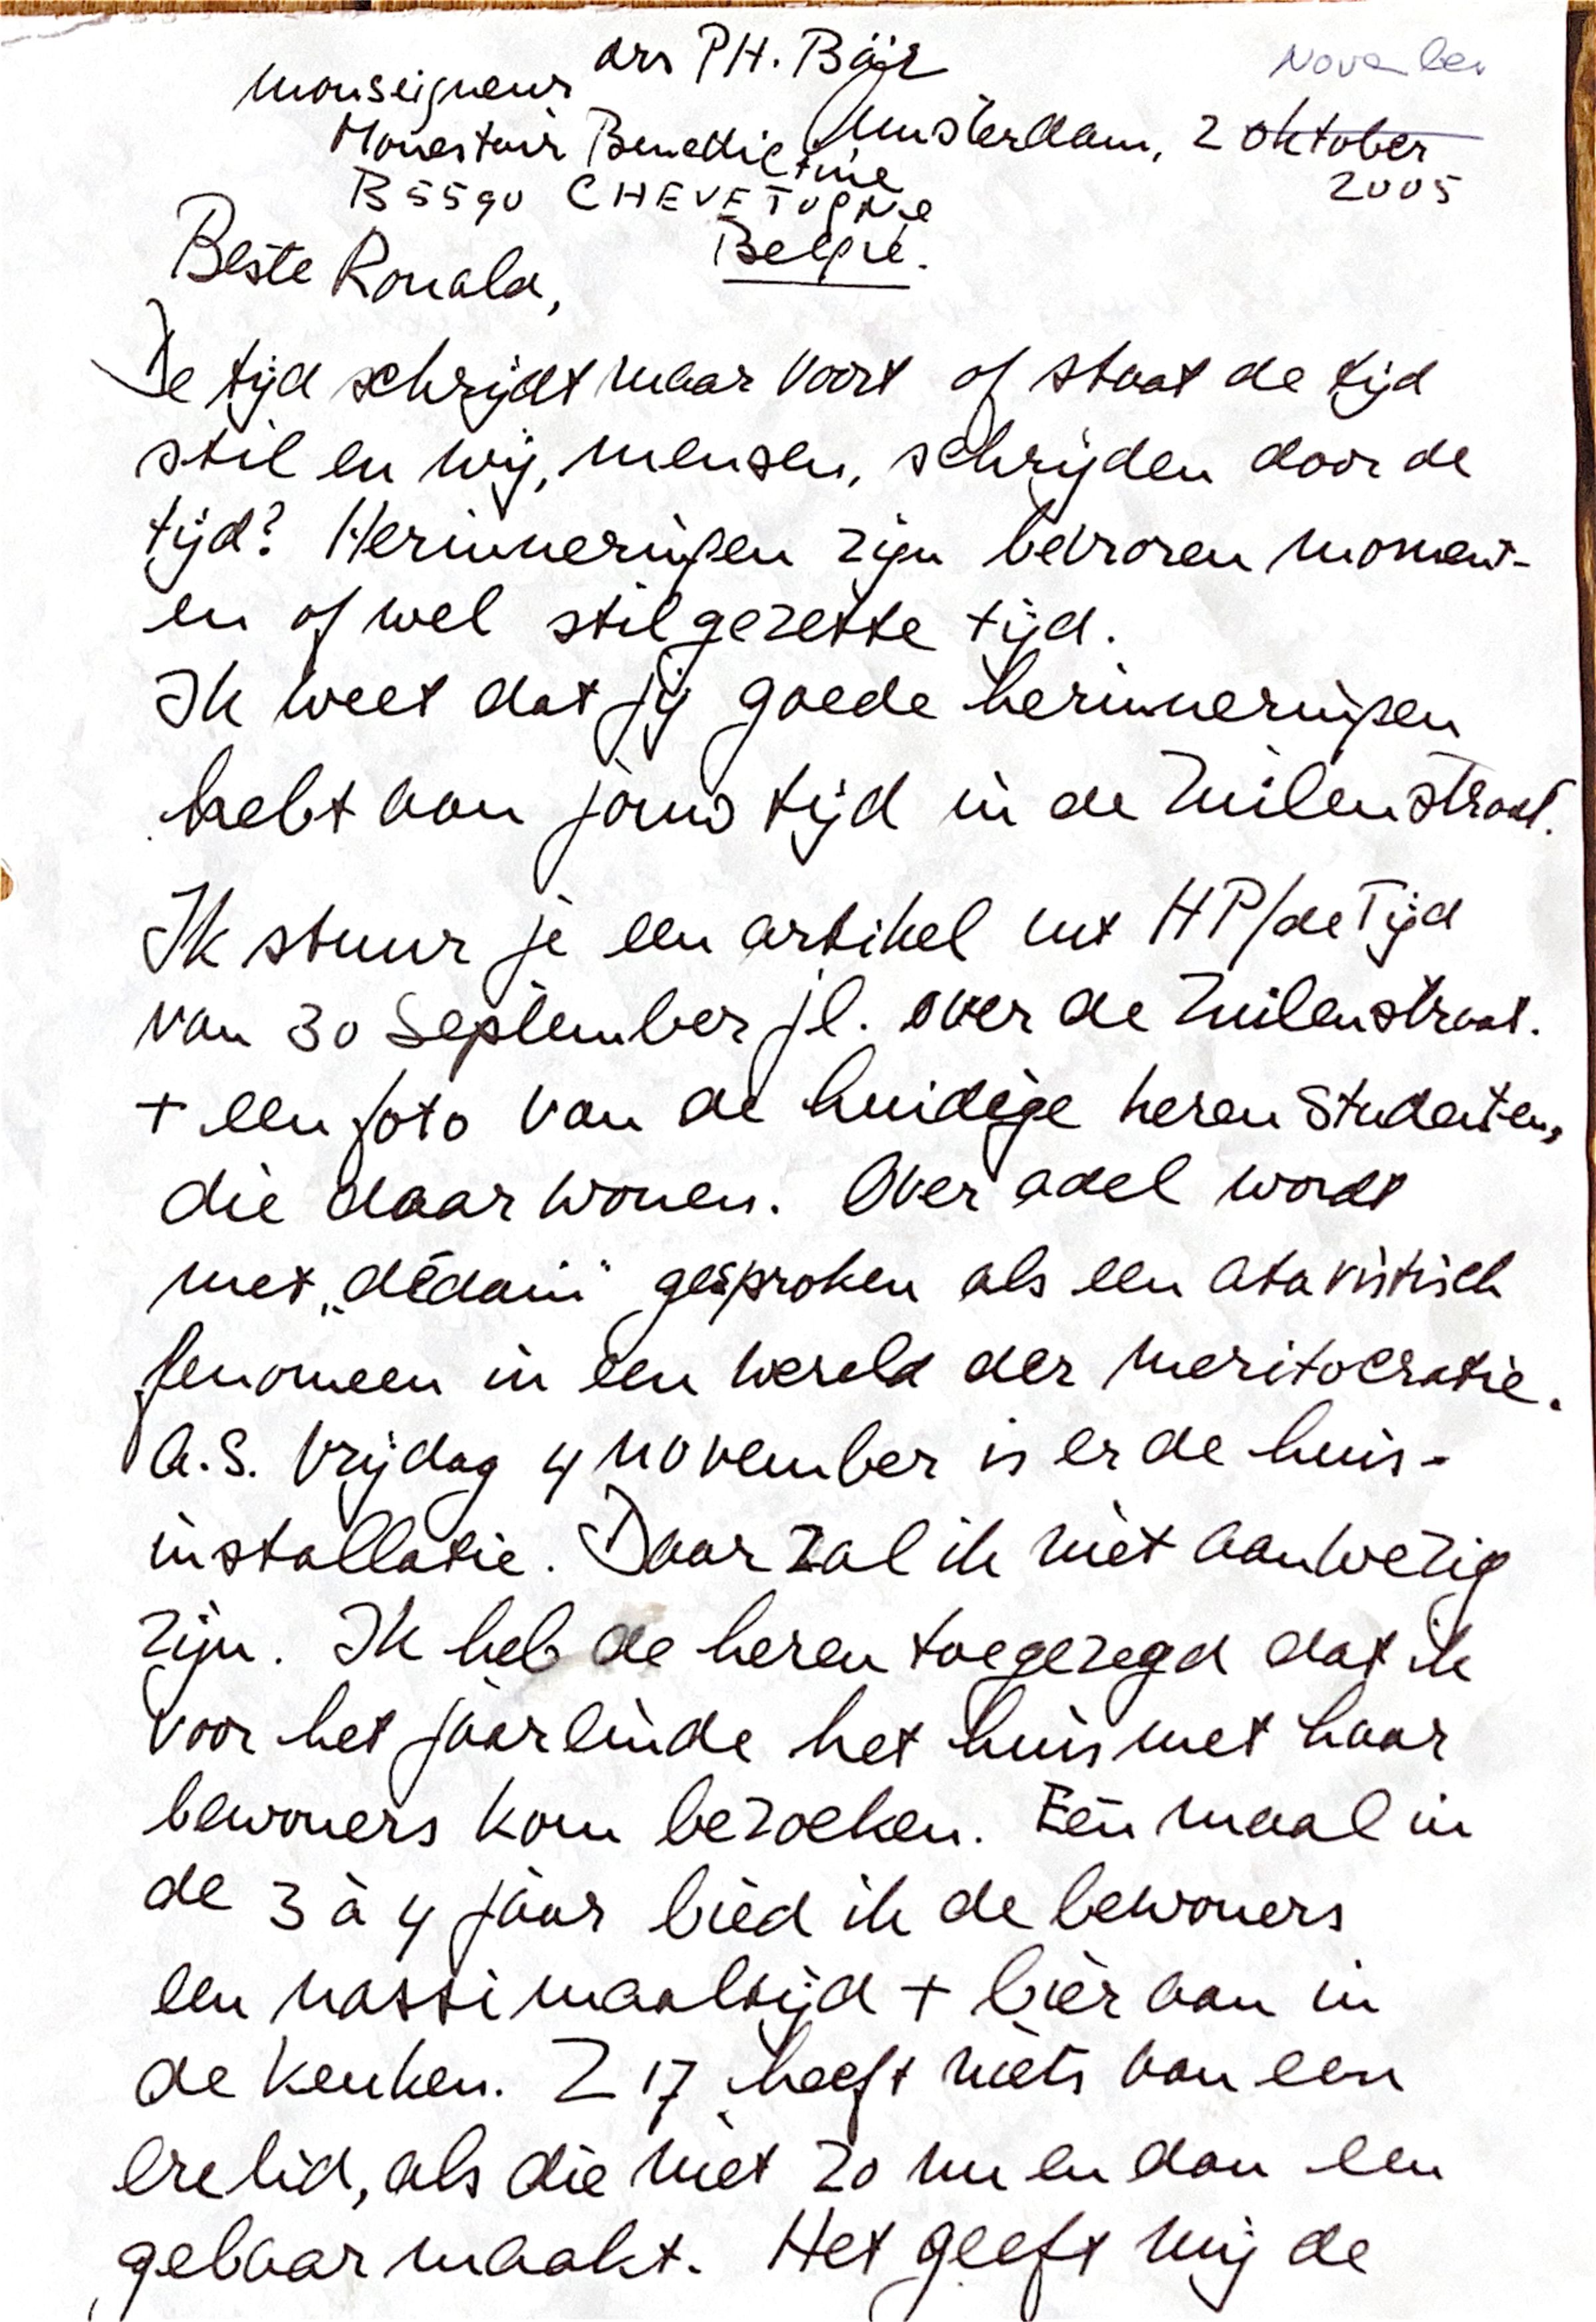 drs PH. Bär
November
Monseigneur
Amsterdam, 2 oktober
2005
Monastair Benedictine
B5590 CHEVETOGNE
België.
Beste Ronald,
De tijd schrijdt maar voort of staat de tijd
stil en wij, mensen, schrijden door de
tijd? Herinneringen zijn bevroren moment-
en of wel stil gezette tijd.
Ik weet dat jij goede herinneringen
hebt aan jouw tijd in de Zuilenstraat.
Ik stuur je een artikel uit HP/de Tijd
van 30 September jl. over de Zuilenstraat.
+ een foto van de huidige heren Studenten,
die daar wonen. Over adel wordt
met „dédain" gesproken als een atavistisch
fenomeen in een wereld der meritocratie.
a.s. Vrijdag 4 november is er de huis-
installatie. Daar zal ik niet aanwezig
zijn. Ik heb de heren toegezegd dat ik
voor het jaareinde het huis met haar
bewoners kom bezoeken. Eén maal in
de 3 à 4 jaar bied ik de bewoners
een nassi maaltijd + bier aan in
de keuken. Z 17 heeft niets aan een
erelid, als die niet zo nu en dan een
gebaar maakt. Het geeft mij de